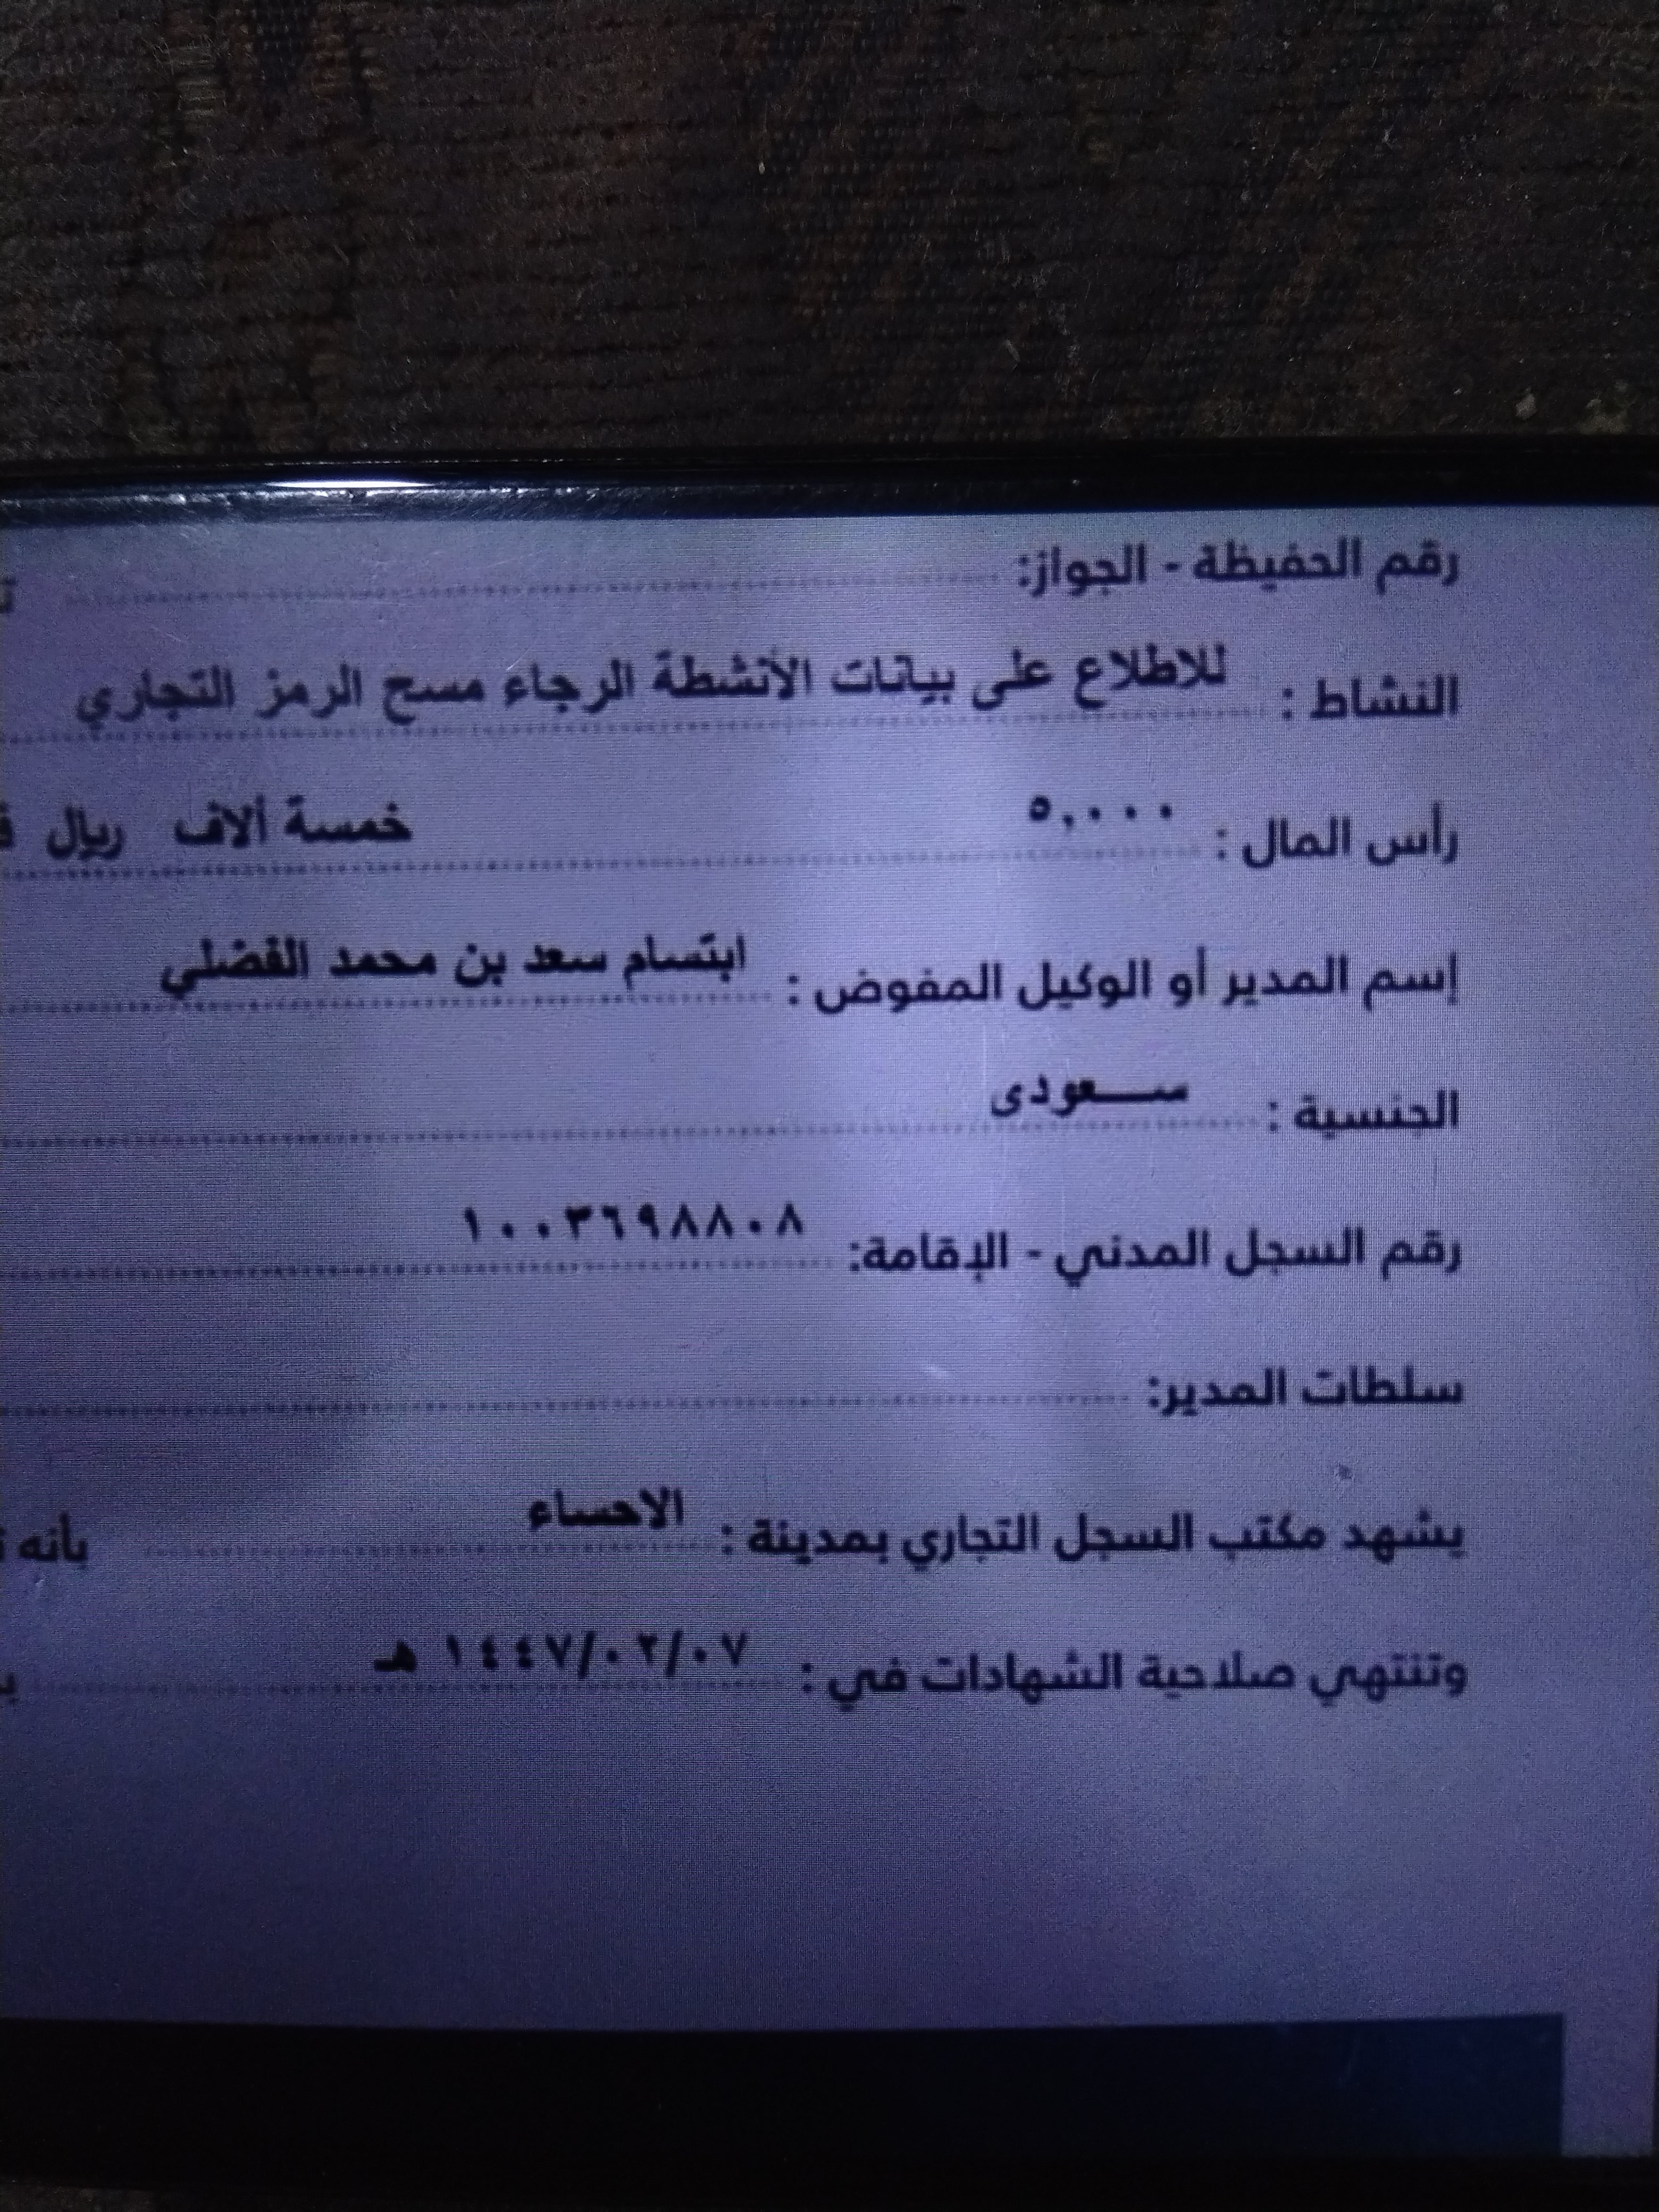 رقم الحفيظة - الجواز:
النشاط : للاطلاع على بيانات الأنشطة الرجاء مسح الرمز التجاري
رأس المال : ٥,٠٠٠ خمسة ألاف ريال
إسم المدير أو الوكيل المفوض : ابتسام سعد بن محمد الفضلي
الجنسية : سعودى
رقم السجل المدني - الإقامة: ١٠٠٣٦٩٨٨٠٨
سلطات المدير:
يشهد مكتب السجل التجاري بمدينة : الاحساء بأنه
وتنتهي صلاحية الشهادات في : ١٤٤٧/٠٢/٠٧ هـ